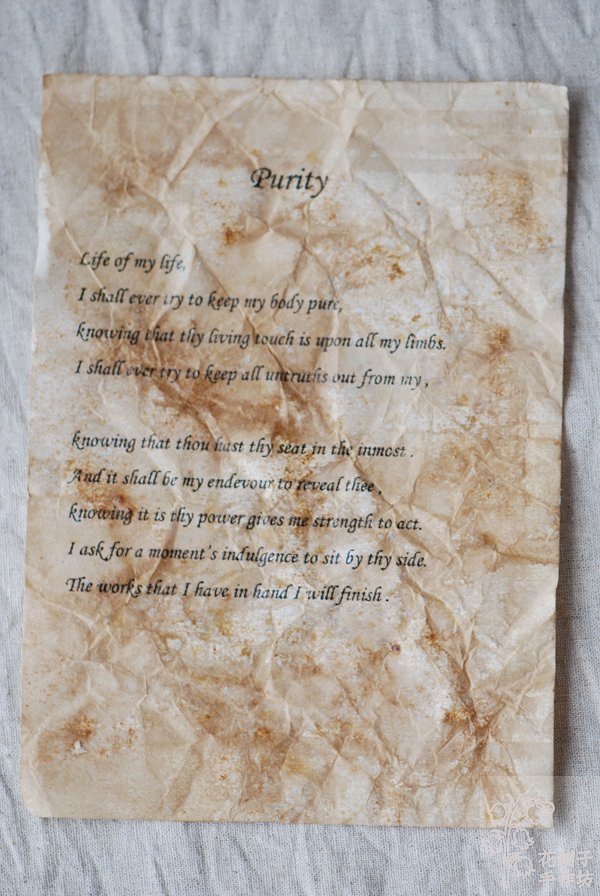 Purity
Life of my life,
I shall ever try to keep my body pure,
knowing that thy living touch is upon all my limbs.
I shall ever try to keep all untruths out from my ,
knowing that thou hast thy seat in the inmost .
And it shall be my endevour to reveal thee ,
knowing it is thy power gives me strength to act.
I ask for a moment's indulgence to sit by thy side.
The works that I have in hand I will finish .
手作坊